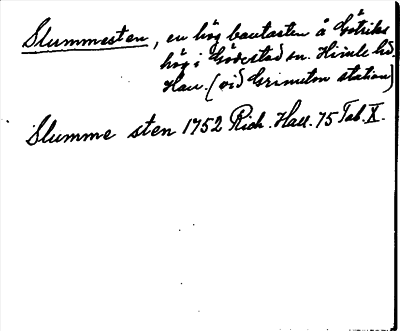 Slummesten, en hög bautasten å Götriks
hög i Gödestad sn. Himle hd.
Hall. (vid Grimeton station)
Slumme sten 1752 Rich. Hall. 75 Tab. X.